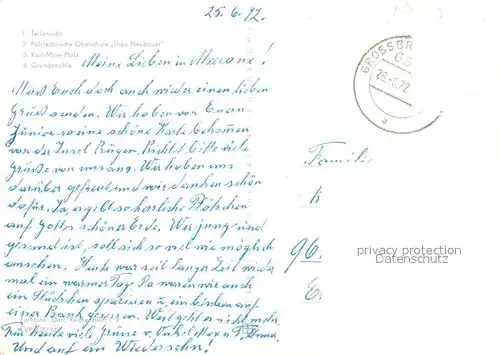 25.6.72.
1 Teilansicht
2 Polytechnische Oberschule „Theo Neubauer"
3 Karl-Marx-Platz
4 Grundmühle
Meine Lieben in Meerane!
Muß Euch doch auch wieder einen lieben
Gruß senden. Wir haben von Euern
Junior so eine schöne Karte bekommen
von der Insel Rügen. Richtet bitte viele
Grüße von uns aus. Wir haben uns
darüber gefreut und wir danken schön
dafür. Ja, es gibt so herrliche Plätzchen
auf Gottes schöner Erde. Wer jung und
gesund ist, soll sich so viel wie möglich
ansehen. Heute war seit langer Zeit wieder
mal ein warmer Tag. Da waren wir auch
ein Stückchen spazieren u. ein bischen auf
einer Bank gesessen. Weil geht es nicht mehr.
Für heute viele Grüsse v. Onkel Max u. T.
Und auf ein Wiedersehn!
GROSSBR
26.-6.72
a
Familie
96.
privacy protection
Datenschutz